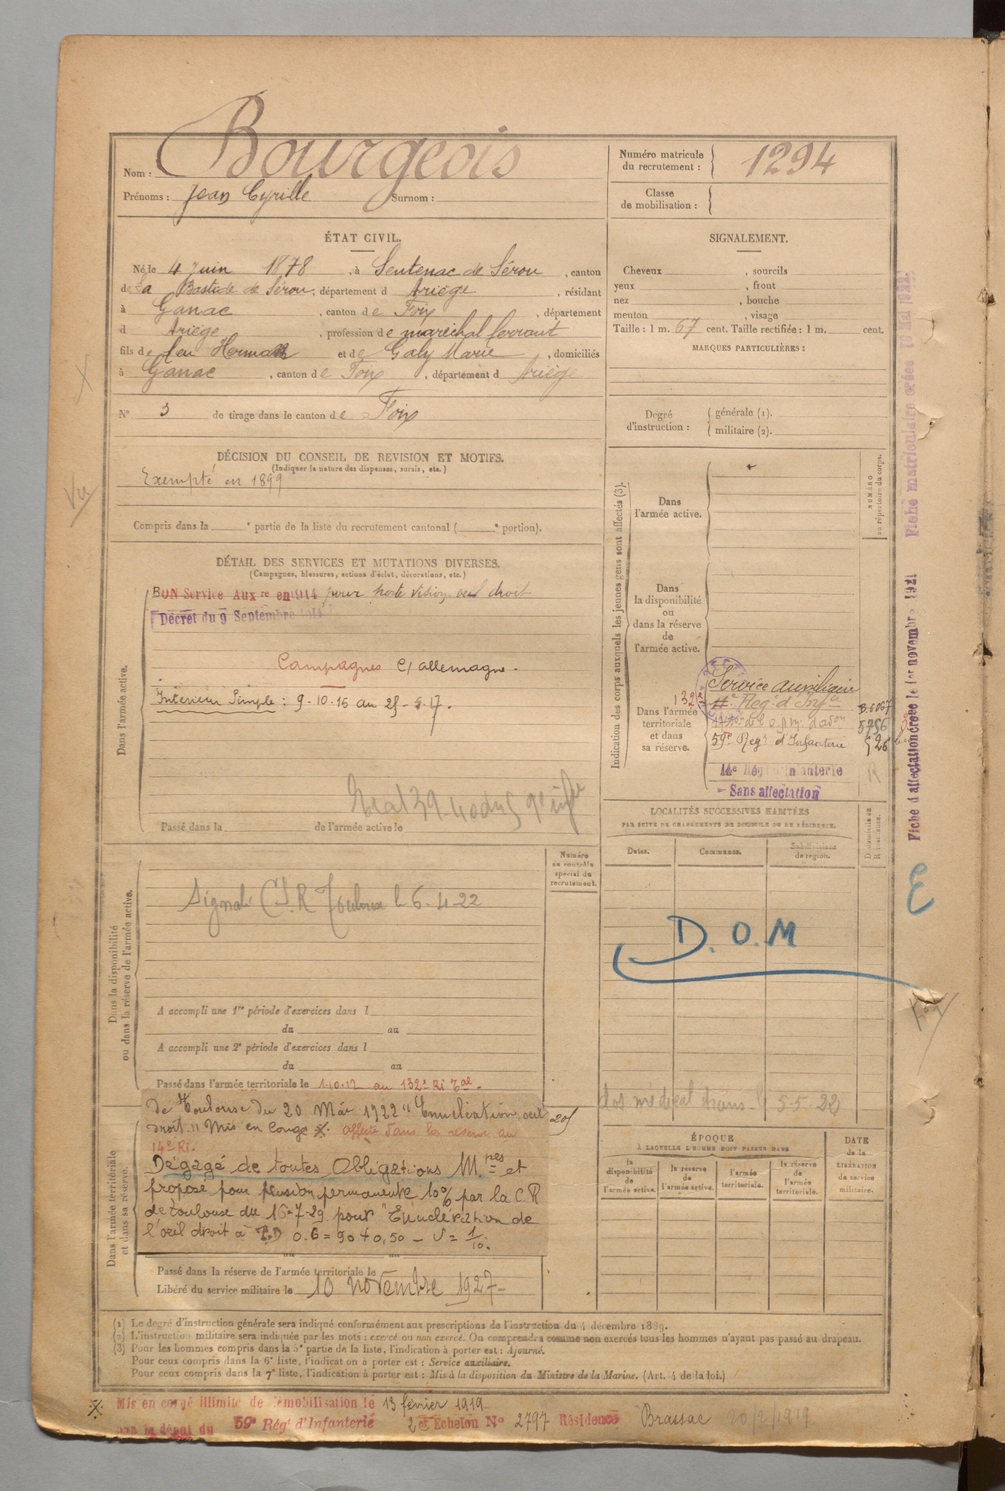 Nom : Bourgeois
Prénoms : Jean Cyrille Surnom :
Numéro matricule du recrutement : 1294
Classe de mobilisation :
ÉTAT CIVIL.
Né le 4 Juin 1878, à Sentenac de Sérou, canton
de La Bastide de Sérou, département d Ariège, résidant
à Ganac, canton de Foix, département
d Ariège, profession de maréchal ferrant
fils de feu et de Galy Marie, domiciliés
à Ganac, canton de Foix, département d Ariège
N° 3 de tirage dans le canton de Foix
SIGNALEMENT.
Cheveux , sourcils
yeux , front
nez , bouche
menton , visage
Taille : 1 m. 67 cent. Taille rectifiée : 1 m. cent.
MARQUES PARTICULIÈRES :
Degré d'instruction : générale (1). militaire (2).
DÉCISION DU CONSEIL DE REVISION ET MOTIFS.
(Indiquer la nature des dispenses, sursis, etc.)
Exempté en 1899
Compris dans la e partie de la liste du recrutement cantonal ( e portion).
DÉTAIL DES SERVICES ET MUTATIONS DIVERSES.
(Campagnes, blessures, actions d'éclat, décorations, etc.)
Dans l'armée active.
BON Service Aux re en 1914 pour perte vision oeil droit
Décret du 9 Septembre 1914
Campagnes C/ allemagne.
Intérieur Simple : 9-10-16 au 25-5-17.
Passé dans la de l'armée active le
Indication des corps auxquels les jeunes gens sont affectés (3).
NUMÉRO au répertoire du corps.
Dans l'armée active.
Dans la disponibilité ou dans la réserve de l'armée active.
Dans l'armée territoriale et dans sa réserve.
Service auxiliaire
59e Regt d'Infanterie
14e Régt Infanterie
Sans affectation
Fiche d'affectation créée le 1er novembre 1921
Fiche matriculaire créée 10 Mai 1922
LOCALITÉS SUCCESSIVES HABITÉES
PAR SUITE DE CHANGEMENTS DE DOMICILE OU DE RÉSIDENCE.
Dates. Communes. Subdivisions de région.
D. O. M
E
Dans la disponibilité ou dans la réserve de l'armée active.
Numéro au contrôle spécial du recrutement.
Signalé C.S.R Toulouse le 6-4-22
A accompli une 1re période d'exercices dans l
du au
A accompli une 2e période d'exercices dans l
du au
Passé dans l'armée territoriale le 1-10-12 au 132e Ri Tal.
dos médical trans. le 5-5-22
Dans l'armée territoriale et dans sa réserve.
de Toulouse du 20 Mai 1922 "Enucléation oeil
droit" Mis en congé affecté dans les réserves au
14e RI.
Dégagé de toutes Obligations Mres et
proposé pour pension permanente 10% par la C.R
de Toulouse du 16-7-29 pour "Enucléation de
l'oeil droit
ÉPOQUE
À LAQUELLE L'HOMME DOIT PASSER DANS
la disponibilité de l'armée active. la réserve de l'armée active. l'armée territoriale. la réserve de l'armée territoriale.
DATE de la LIBÉRATION du service militaire.
Passé dans la réserve de l'armée territoriale le
Libéré du service militaire le 10 novembre 1927
(1) Le degré d'instruction générale sera indiqué conformément aux prescriptions de l'instruction du 4 décembre 1889.
(2) L'instruction militaire sera indiquée par les mots : exercé ou non exercé. On comprendra comme non exercés tous les hommes n'ayant pas passé au drapeau.
(3) Pour les hommes compris dans la 5e partie de la liste, l'indication à porter est : Ajourné.
Pour ceux compris dans la 6e liste, l'indication à porter est : Service auxiliaire.
Pour ceux compris dans la 7e liste, l'indication à porter est : Mis à la disposition du Ministre de la Marine. (Art. 4 de la loi.)
Mis en congé illimité de démobilisation le 13 février 1919
par le dépôt du 59e Régt d'Infanterie 2e Echelon N° 2797 Résidence Brassac